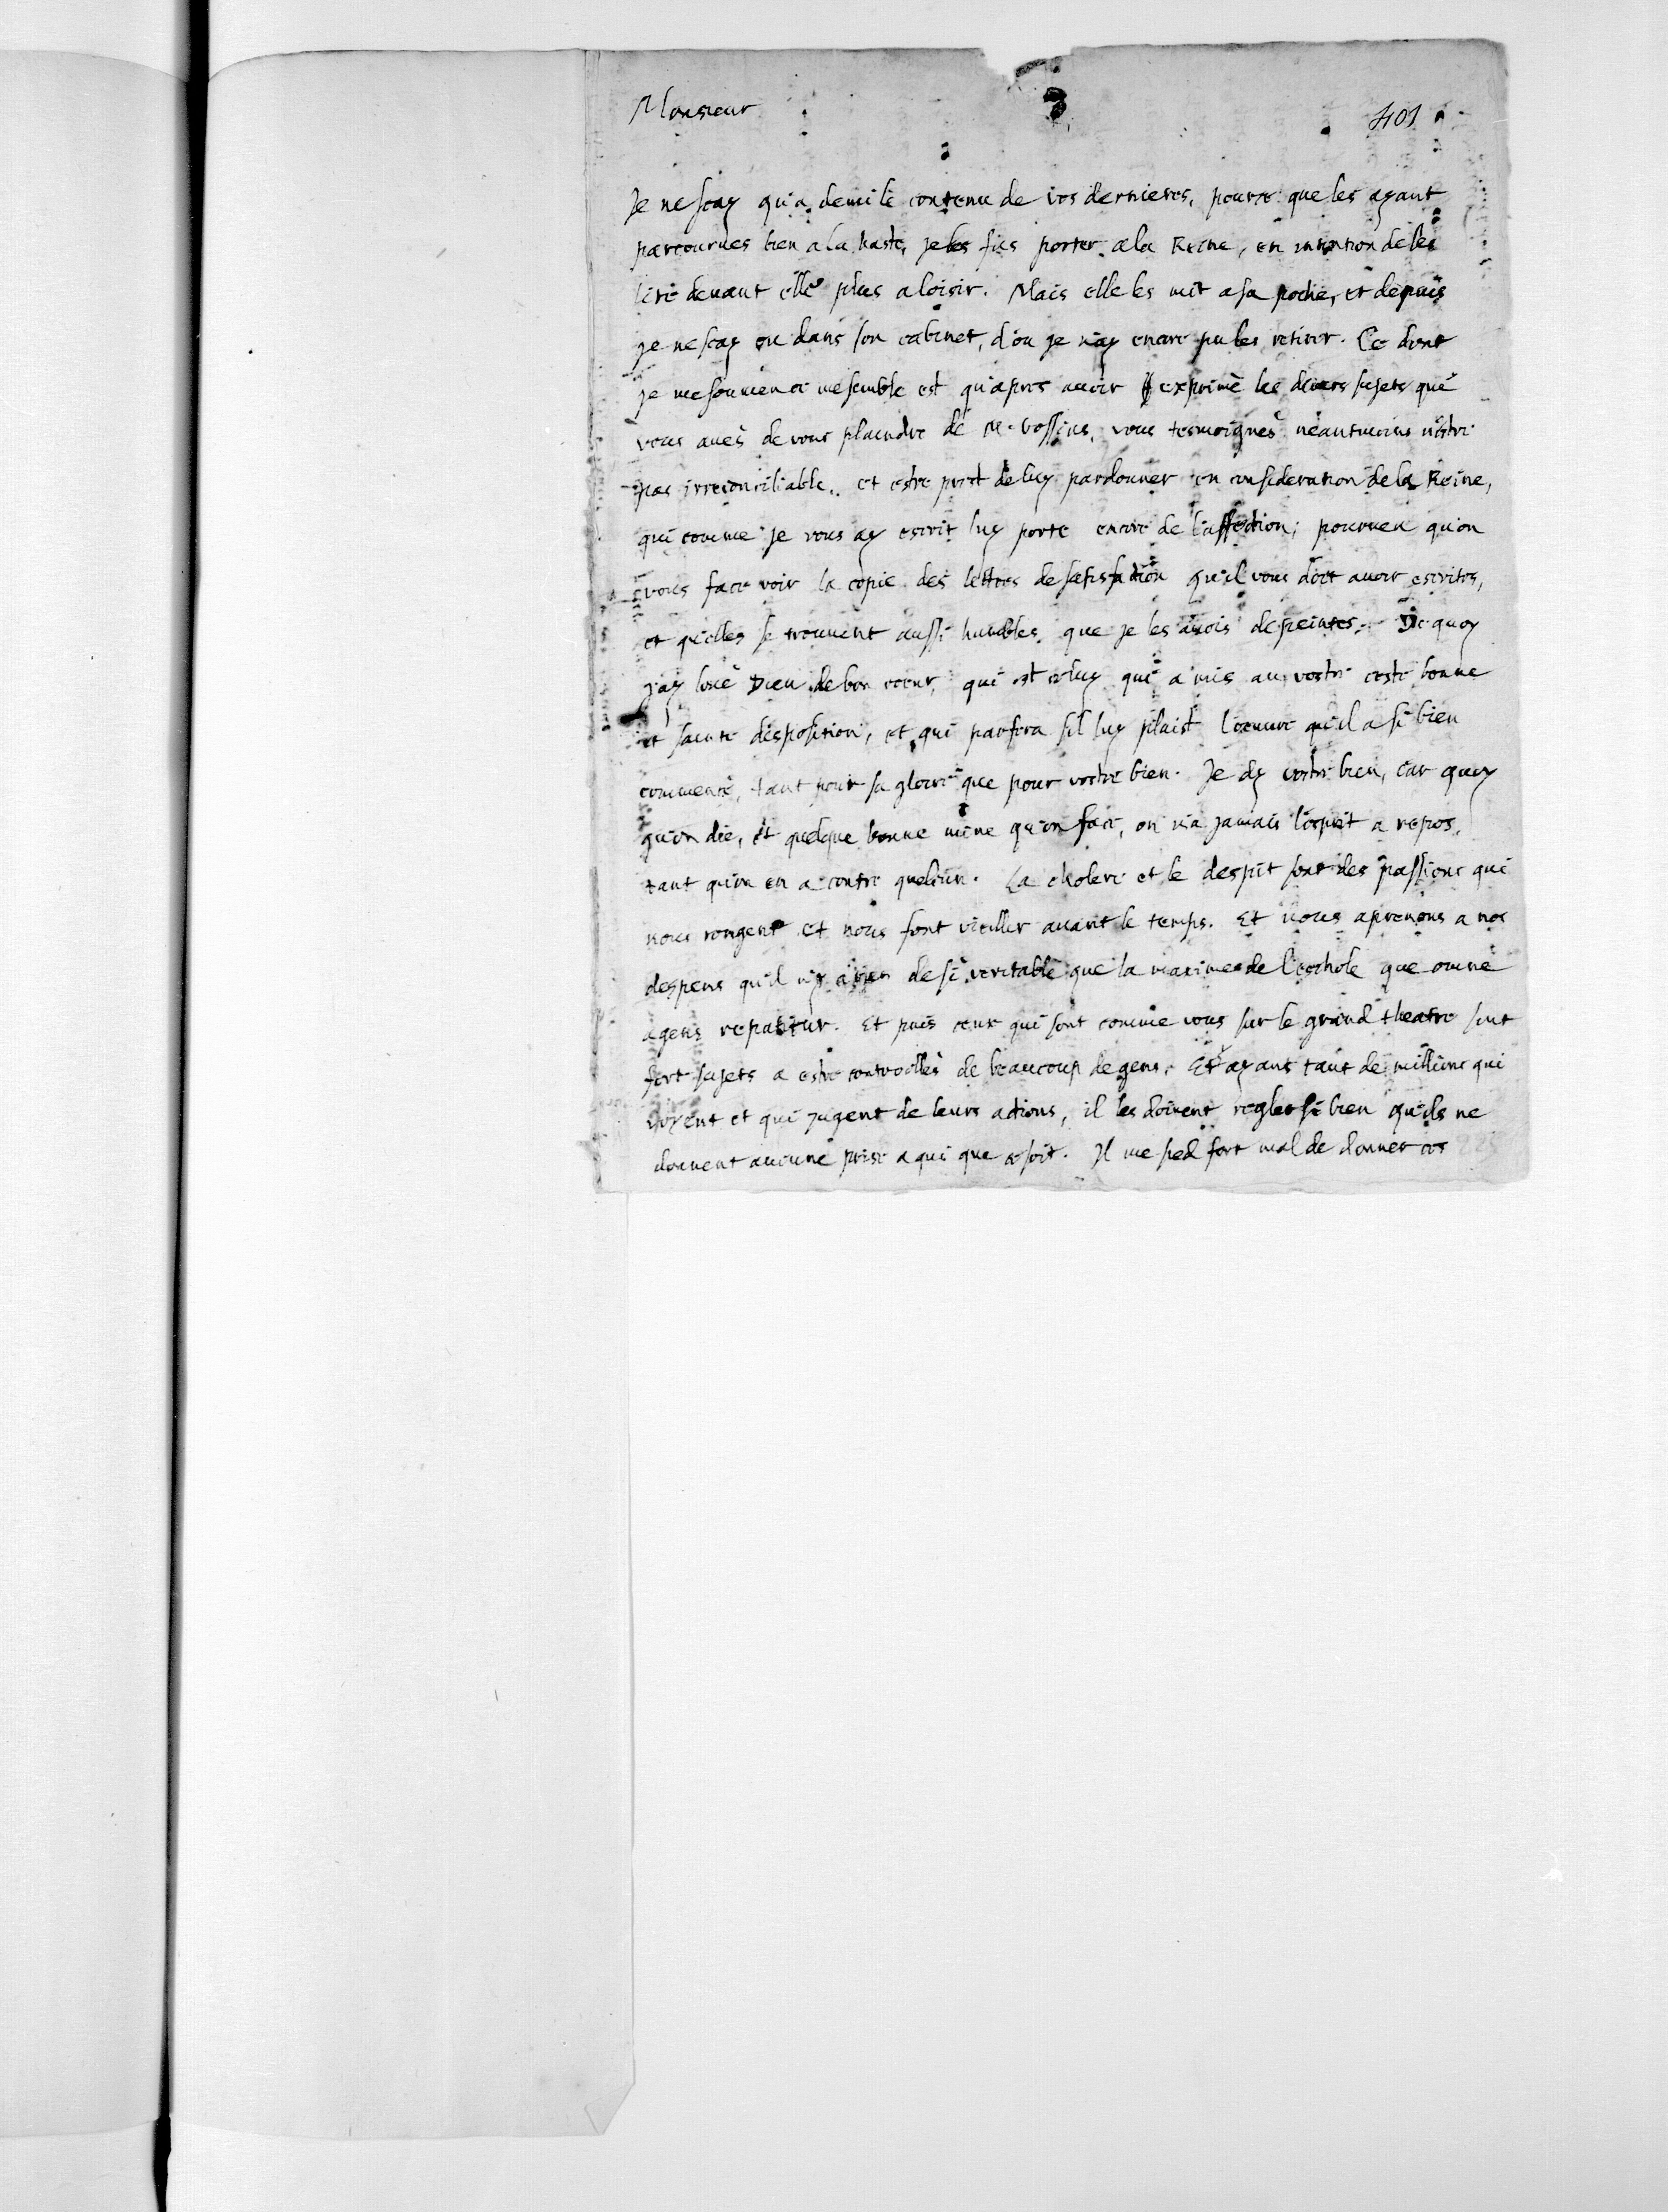 Monsieur
3
401
Je ne sçay qu'a demi le contenu de vos dernieres, pource que les ayant
parcourues bien a la haste, je les fis porter a la Reine, en intention de les
lire devant elle plus a loisir. Mais elle les mit a sa poche, et depuis
je ne sçay ou dans son cabinet, d'ou je n'ay encore pu les retirer. Ce dont
je me souvien ce me semble est qu'apres avoir exprimè les divers sujets que
vous avès de vous plaindre de M. Vossius, vous tesmoignès neantmoins n'estre
pas irreconciliable, et estre prest de luy pardonner en consideration de la Reine,
qui comme je vous ay escrit luy porte encore de l'affection; pourveu qu'on
vous face voir la copie des lettres de satisfaction qu'il vous doit avoir escrites,
et qu'elles se trouvent aussi humbles que je les avois depeintes. De quoy
j'ay louè Dieu de bon coeur, qui est celuy qui a mis au vostre ceste bonne
et sainte disposition, et qui parfera s'il luy plaist l'oeuvre qu'il a si bien
commencè, tant pour sa gloire que pour vostre bien. Je dy vostre bien, car quoy
qu'on die, et quelque bonne mine qu'on face, on n'a jamais l'esprit a repos,
tant qu'on en a contre quelcun. La cholere et le despit sont des passions qui
nous rongent et nous font vieillir avant le temps. Et nous aprenons a nos
despens qu'il n'y a rien de si veritable que la maxime de l'eschole que omne
agens repatitur. Et puis ceux qui sont comme vous sur le grand theatre sont
fort sujets a estre controollès de beaucoup de gens. Et ayans tant de millions qui
voyent et qui jugent de leurs actions, il les doivent regler si bien qu'ils ne
donnent aucune prise a qui que ce soit. Il me sied fort mal de donner ces